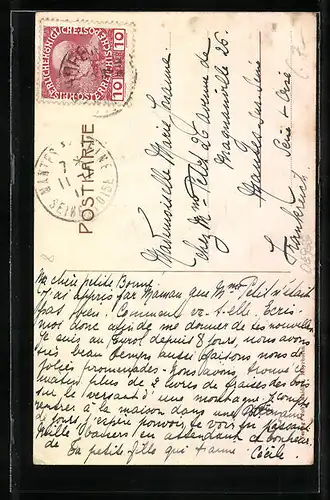 POSTKARTE
10 10
MANTES
SEINE
Mademoiselle Marie Jeanne
chez Mme Petit 26 avenue de
Magnanville 26.
Mantes sur Seine
Seine & Oise
Frankreich
Ma chère petite Bonne
J'ai appris par Maman que Mme Petit n'était
pas bien. Comment va-t-elle. Ecris-
moi donc afin de me donner de ses nouvelles
Je suis au Tyrol depuis 8 jours, nous avons
très beau temps aussi faisons nous de
jolies promenades. Nous avons trouvé ce
matin plus de 2 livres de fraises des bois
sur le versant d'une montagne. Je compte
rentrer à la maison dans une
jours, j'espère pouvoir te voir en passant
Mille baisers en attendant ce bonheur
de ta petite fille qui t'aime. Cécile.